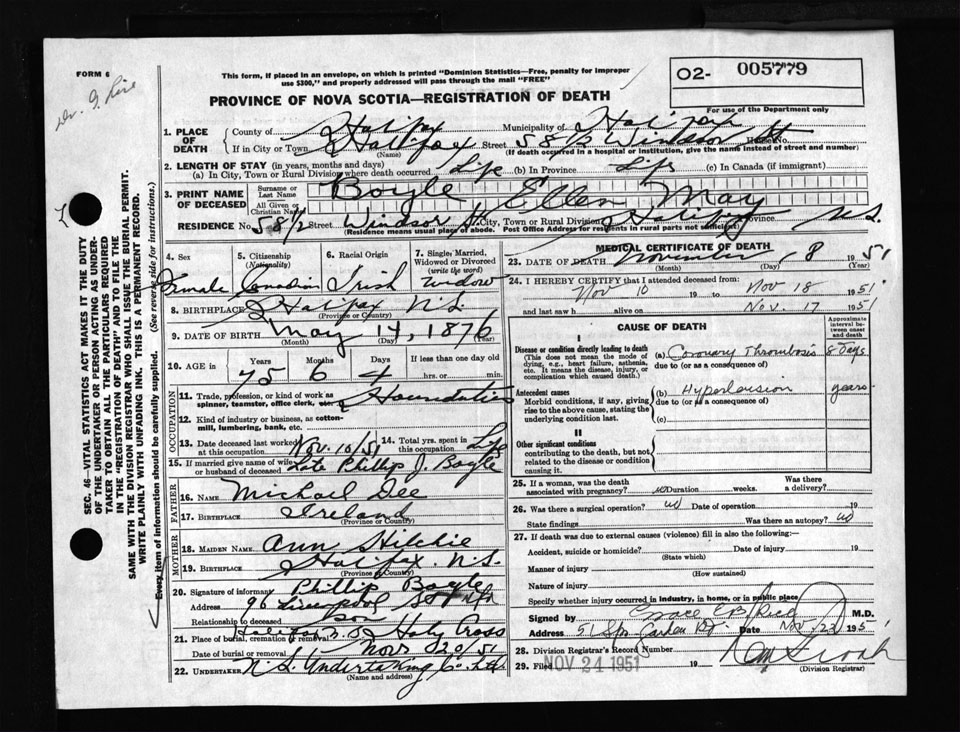 FORM 6
This form, if placed in an envelope, on which is printed "Dominion Statistics—Free, penalty for improper
use $300," and properly addressed will pass through the mail "FREE"
O2- 005779
For use of the Department only
PROVINCE OF NOVA SCOTIA—REGISTRATION OF DEATH
SEC. 46—VITAL STATISTICS ACT MAKES IT THE DUTY
OF THE UNDERTAKER OR PERSON ACTING AS UNDER-
TAKER TO OBTAIN ALL THE PARTICULARS REQUIRED
IN THE "REGISTRATION OF DEATH" AND TO FILE THE
SAME WITH THE DIVISION REGISTRAR WHO SHALL ISSUE THE BURIAL PERMIT.
WRITE PLAINLY WITH UNFADING INK. THIS IS A PERMANENT RECORD.
Every item of information should be carefully supplied. (See reverse side for instructions.)
1. PLACE OF DEATH County of Halifax Municipality of Halifax
If in City or Town Halifax Street 58 1/2 Windsor St House No.
(Name) (If death occurred in a hospital or institution, give the name instead of street and number)
2. LENGTH OF STAY (in years, months and days)
(a) In City, Town or Rural Division where death occurred Life (b) In Province Life (c) In Canada (if immigrant)
3. PRINT NAME OF DECEASED Surname or Last Name Boyle Ellen May
All Given or Christian Names
RESIDENCE No. 58 1/2 Street Windsor St. City, Town or Rural Division Halifax Province N.S.
(Residence means usual place of abode. Post Office Address for residents in rural parts not sufficient)
4. Sex 5. Citizenship (Nationality) 6. Racial Origin 7. Single, Married, Widowed or Divorced (write the word)
Female Canadian Irish Widow
8. BIRTHPLACE Halifax N.S.
(Province or Country)
9. DATE OF BIRTH May 14, 1876
(Month) (Day) (Year)
10. AGE in Years Months Days If less than one day old
75 6 4 hrs. or min.
OCCUPATION
11. Trade, profession, or kind of work as
spinner, teamster, office clerk, etc.
12. Kind of industry or business, as cotton-
mill, lumbering, bank, etc.
13. Date deceased last worked at this occupation Nov. 10/51 14. Total yrs. spent in this occupation Life
15. If married give name of wife or husband of deceased Late Phillip J. Boyle
FATHER
16. NAME Michael Dee
17. BIRTHPLACE Ireland
(Province or Country)
MOTHER
18. MAIDEN NAME Ann
19. BIRTHPLACE Halifax, N.S.
(Province or Country)
20. Signature of informant Phillip Boyle
Address 96 Liverpool St
Relationship to deceased Son
21. Place of burial, cremation or removal Halifax N.S. Holy Cross
Date of burial or removal Nov 20/51
22. UNDERTAKER N.S. Undertaking Co. Ltd
(Name and address)
MEDICAL CERTIFICATE OF DEATH
23. DATE OF DEATH November 18 1951
(Month) (Day) (Year)
24. I HEREBY CERTIFY that I attended deceased from:
Nov 10 19 to Nov 18 1951
and last saw h alive on Nov. 17 1951
CAUSE OF DEATH
Approximate interval between onset and death
I
Disease or condition directly leading to death (a) Coronary Thrombosis 8 days
(This does not mean the mode of
dying, e.g., heart failure, asthenia,
etc. It means the disease, injury, or
complication which caused death.)
due to (or as a consequence of)
Antecedent causes (b) Hypertension years
Morbid conditions, if any, giving
rise to the above cause, stating the
underlying condition last.
due to (or as a consequence of)
(c)
II
Other significant conditions
contributing to the death, but not
related to the disease or condition
causing it.
25. If a woman, was the death
associated with pregnancy? no Duration weeks. Was there
a delivery?
26. Was there a surgical operation? no Date of operation 19
State findings Was there an autopsy? no
27. If death was due to external causes (violence) fill in also the following:—
Accident, suicide or homicide? Date of injury 19
(State which)
Manner of injury
(How sustained)
Nature of injury
Specify whether injury occurred in industry, in home, or in public place
Signed by Grace E B Rice M.D.
Address 51 Spr. Garden Rd. Date Nov 23 1951
28. Division Registrar's Record Number
29. Filed NOV 24 1951 19
(Division Registrar)